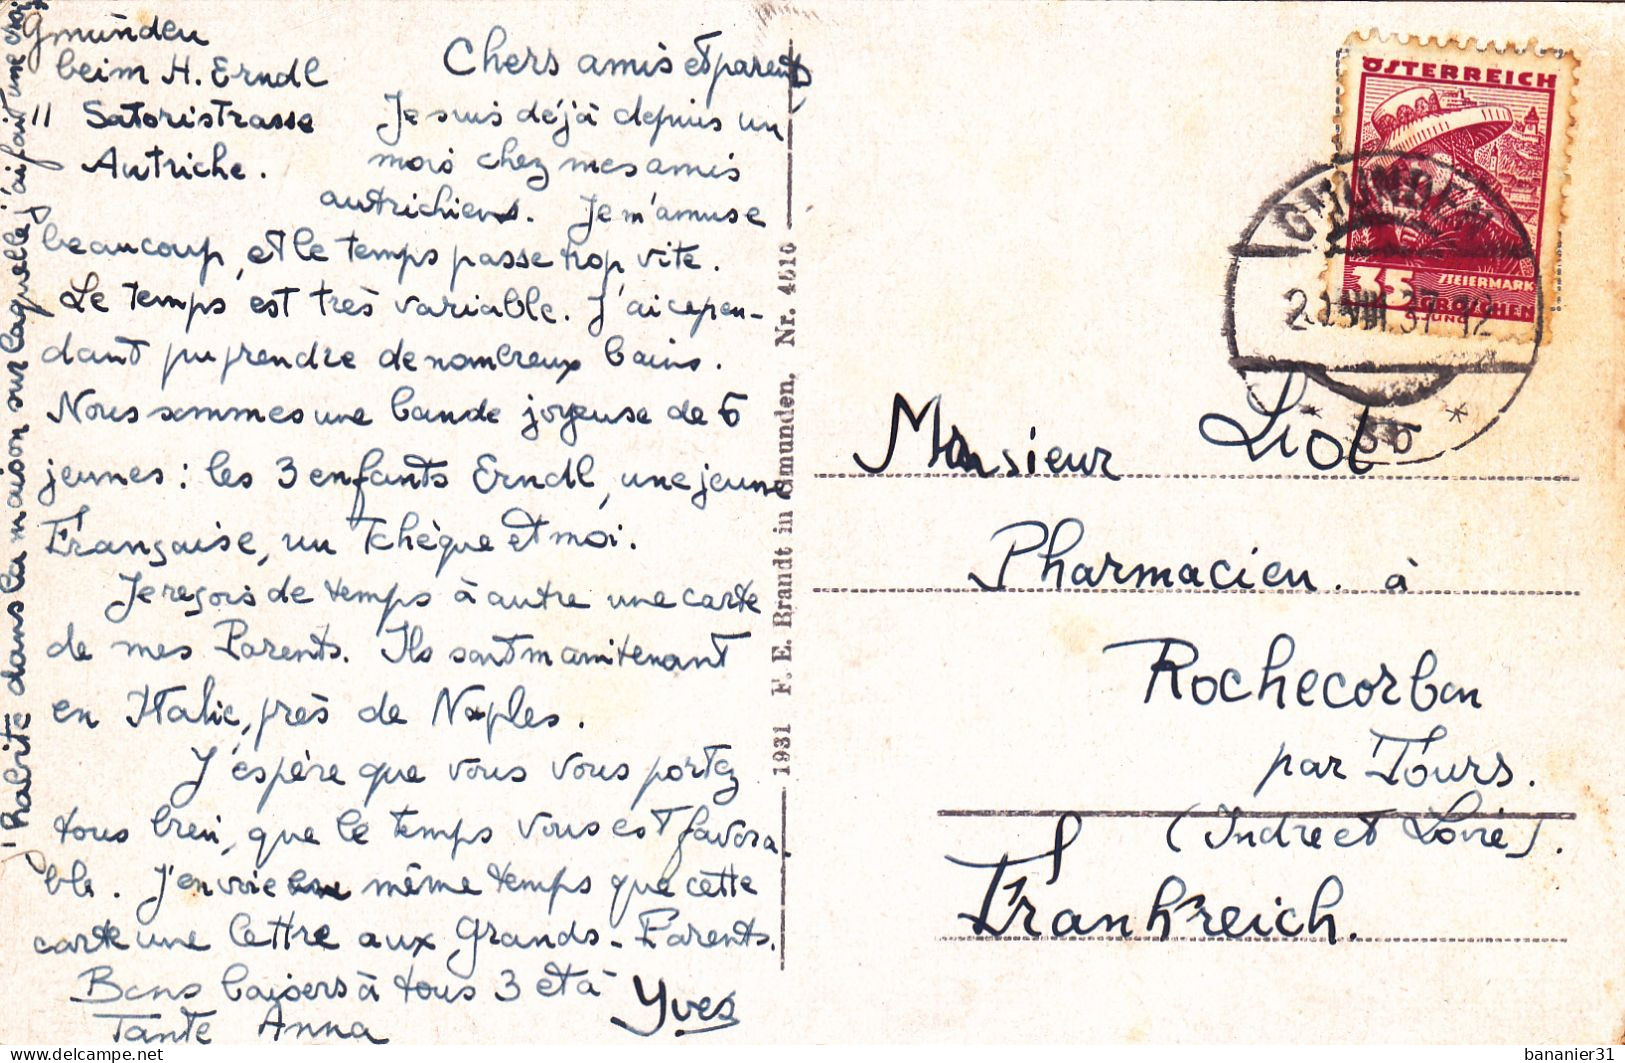 Gmunden
beim H. Erndl
11 Satoristrasse
Autriche.
Chers amis et parents,
Je suis déjà depuis un
mois chez mes amis
autrichiens. Je m'amuse
beaucoup, et le temps passe trop vite.
Le temps est très variable. J'ai cepen-
dant pu prendre de nombreux bains.
Nous sommes une bande joyeuse de 6
jeunes : les 3 enfants Erndl, une jeune
Française, un Tchèque et moi.
Je reçois de temps à autre une carte
de mes Parents. Ils sont maintenant
en Italie, près de Naples.
J'espère que vous vous portez
tous bien, que le temps vous est favora-
ble. J'envoie en même temps que cette
carte une lettre aux Grands-Parents.
Bons baisers à tous 3 et à
Tante Anna
Yves
J'habite dans la maison sur laquelle j'ai fait une croix
1931 F. E. Brandt in Gmunden, Nr. 4510
ÖSTERREICH
STEIERMARK
35 GROSCHEN
GMUNDEN
21.VIII.37 12
* 3b *
Monsieur Liot
Pharmacien à
Rochecorbon
par Tours.
(Indre et Loire).
Frankreich.
bananier31